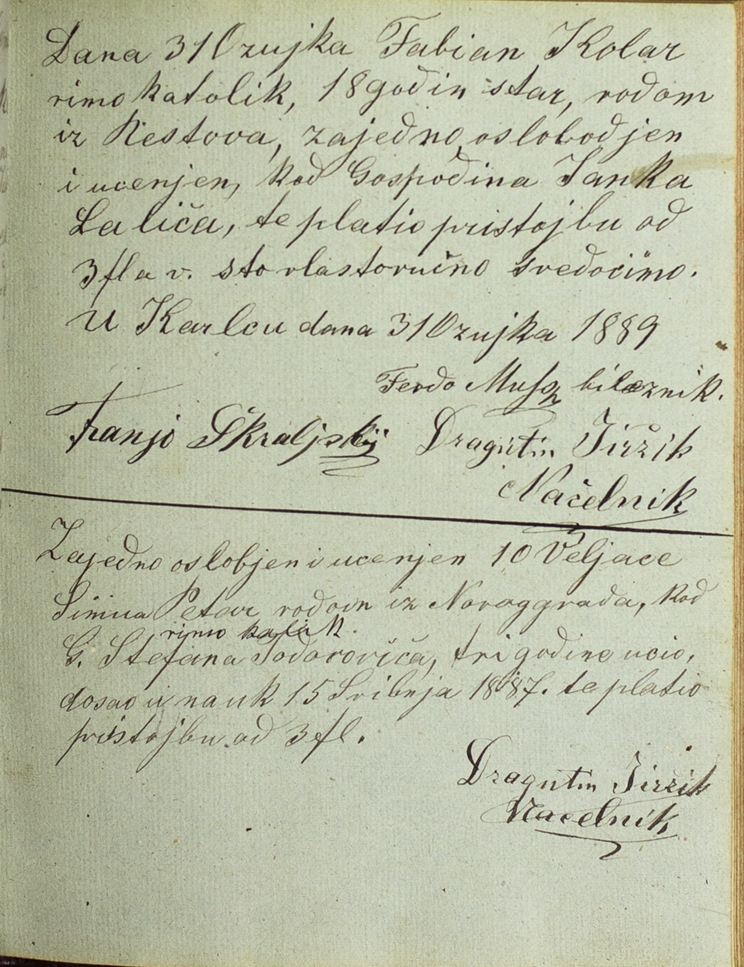 Dana 31 Ozujka Fabian Kolar
rimokatolik, 18 godin star, rodom
iz Restova, zajedno oslobodjen
i ucenjen, kod Gospodina Janka
Laliča, te platio pristojbu od
3 fl a v. sto vlastoručno svedocimo.
U Karlcu dana 31 Ozujka 1889
Ferdo bilæznik.
Franjo Škraljskij Dragutin Jiržik
Načelnik
Zajedno oslobjen i ucenjen 10 Veljace
Petar rodom iz Novoggrada, kod
rimo katik
G. Stefana Todorovića, tri godine ucio,
dosao u nauk 15 Sribnja 1887. te platio
pristojbu od 3 fl.
Dragutin Jiržik
Nacelnik